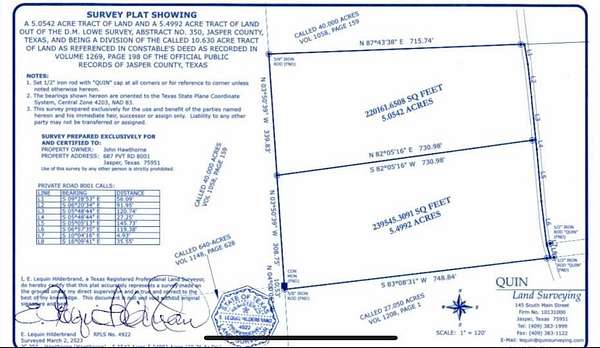 SURVEY PLAT SHOWING
A 5.0542 ACRE TRACT OF LAND AND A 5.4992 ACRE TRACT OF LAND
OUT OF THE D.M. LOWE SURVEY, ABSTRACT NO. 350, JASPER COUNTY,
TEXAS, AND BEING A DIVISION OF THE CALLED 10.630 ACRE TRACT
OF LAND AS REFERENCED IN CONSTABLE'S DEED AS RECORDED IN
VOLUME 1269, PAGE 198 OF THE OFFICIAL PUBLIC
RECORDS OF JASPER COUNTY, TEXAS
NOTES:
1. Set 1/2" iron rod with "QUIN" cap at all corners or for reference to corner unless
noted otherwise hereon.
2. The bearings shown hereon are oriented to the Texas State Plane Coordinate
System, Central Zone 4203, NAD 83.
3. This survey prepared exclusively for the use and benefit of the parties named
hereon and its immediate heir, successor or asign only. Liability to any other
party may not be transferred or assigned.
SURVEY PREPARED EXCLUSIVELY FOR
AND CERTIFIED TO:
PROPERTY OWNER: John Hawthorne
PROPERTY ADDRESS: 687 PVT RD 8001
Jasper, Texas 75951
Use of this survey by any other person is strictly prohibited.
PRIVATE ROAD 8001 CALLS:
LINE BEARING DISTANCE
L1 S 09°28'53" E 56.09'
L2 S 06°20'34" E 91.95'
L3 S 05°48'44" E 120.74'
L4 S 05°48'44" E 27.25'
L5 S 05°05'13" E 145.73'
L6 S 06°57'35" E 119.38'
L7 S 10°04'16" E 4.93'
L8 S 16°09'41" E 35.55'
I, E. Lequin Hilderbrand, a Texas Registered Professional Land Surveyor,
do hereby certify that this plat accurately represents a survey made on
the ground under my direct supervision and is true and correct to the
best of my knowledge. This document is not valid without original
signature and
E. Lequin Hilderbrand RPLS No. 4922
Surveyed March 2, 2023
STATE OF TEXAS
E. LEQUIN HILDERBRAND
4922
CALLED 40.000 ACRES
VOL 1058, PAGE 159
N 87°43'38" E 715.74'
5/8" IRON
ROD (FND)
N 03°50'39" W 339.83'
220161.6508 SQ FEET
5.0542 ACRES
L1
L2
L3
L4
CALLED 40.000 ACRES
VOL 1058, PAGE 159
N 82°05'16" E 730.98'
S 82°05'16" W 730.98'
N 03°50'39" W 308.75'
239545.3091 SQ FEET
5.4992 ACRES
L5
L6
CALLED 640-ACRES
VOL 1148, PAGE 628
CON
MON
(FND)
S 83°08'31" W 748.84'
1/2" IRON
ROD "QUIN"
(FND)
1/2" IRON
ROD "QUIN"
(FND)
CALLED 27.050 ACRES
VOL 1208, PAGE
SCALE: 1" = 120'
QUIN
Land Surveying
145 South Main Street
Firm No. 10131000
Jasper, Texas 75951
Tel: (409) 383-1999
Fax: (409) 383-1122
E-Mail: lequin@quinsurveying.com